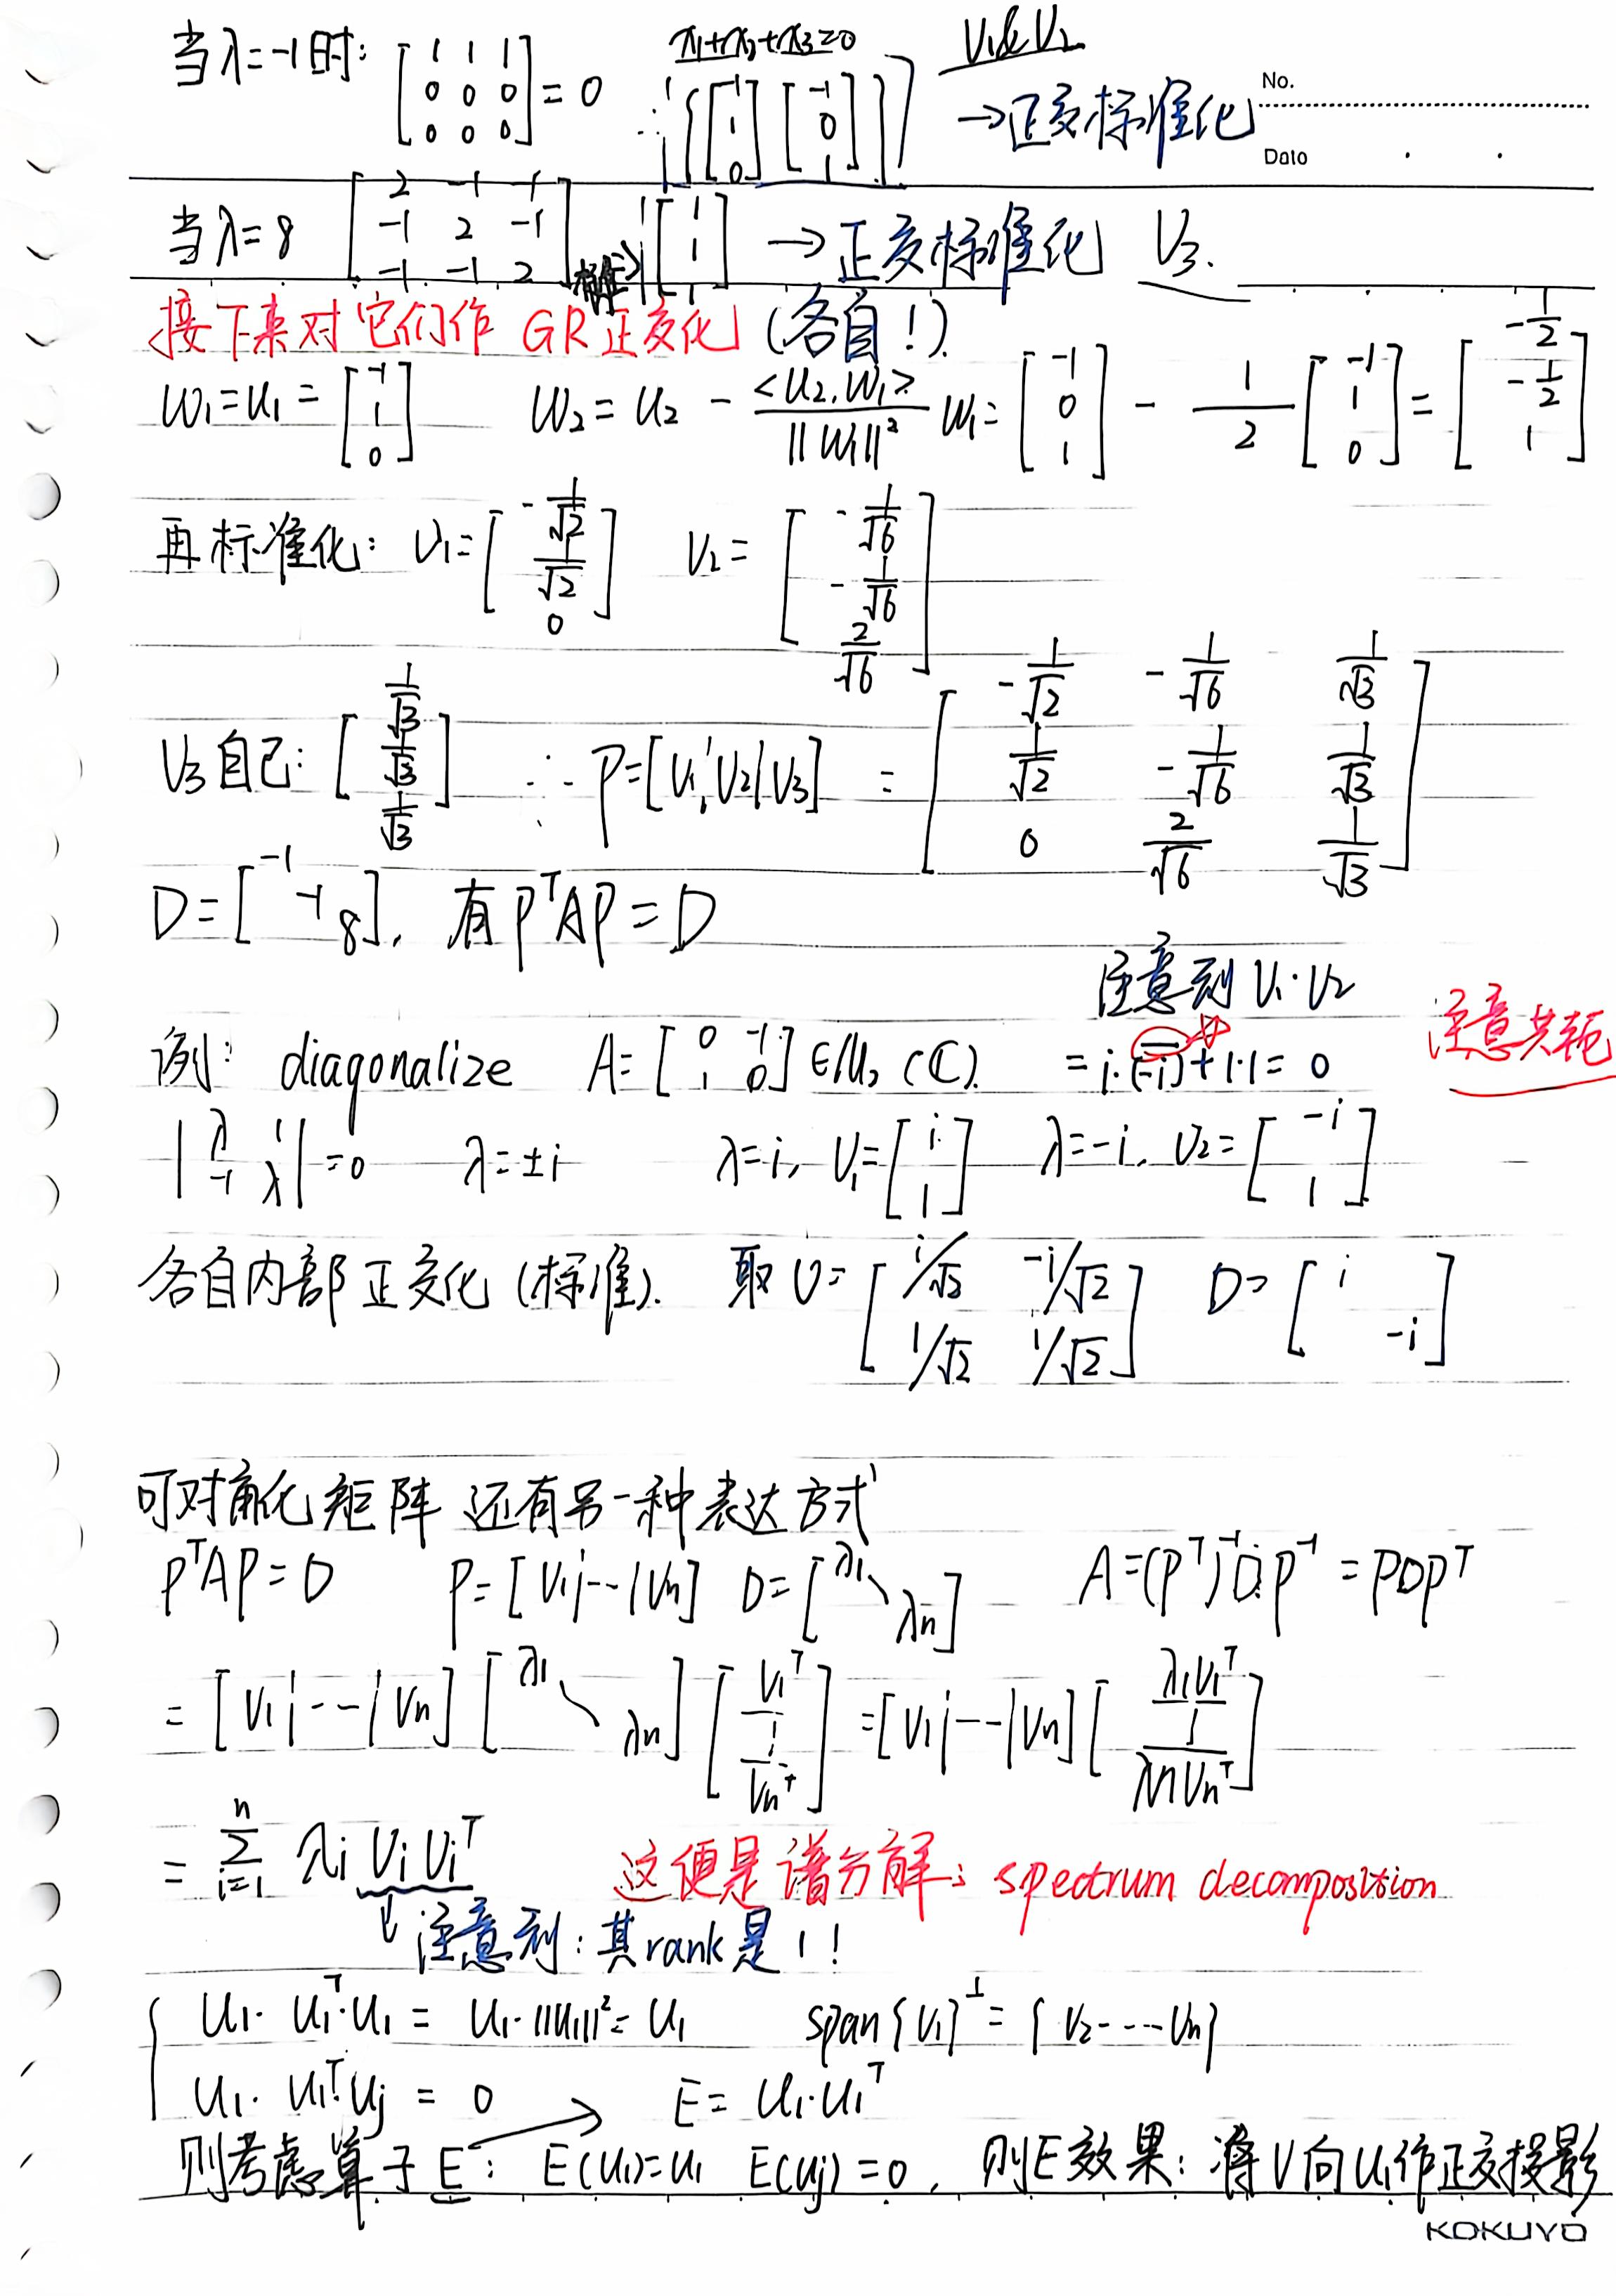 当λ=-1时: [1 1 1; 0 0 0; 0 0 0] = 0 x₁+x₂+x₃=0 ∴ {[-1; 1; 0] [-1; 0; 1]} V₁&V₂ →正交标准化
No.
Date
当λ=8 [2 -1 -1; -1 2 -1; -1 -1 2] [1; 1; 1] → 正交标准化 V₃.
接下来对它们作 GR正交化 (各自!).
W₁=U₁=[-1; 1; 0] W₂=U₂ - <U₂,W₁>/||W₁||² W₁= [-1; 0; 1] - 1/2 [-1; 1; 0] = [-1/2; -1/2; 1]
再标准化: V₁=[-1/√2; 1/√2; 0] V₂=[-1/√6; -1/√6; 2/√6]
V₃自己: [1/√3; 1/√3; 1/√3] ∴ P=[V₁|V₂|V₃] = [-1/√2 -1/√6 1/√3; 1/√2 -1/√6 1/√3; 0 2/√6 1/√3]
D=[-1 -1 8], 有PᵀAP=D
注意到 V₁·V₂
例: diagonalize A=[0 -1; 1 0]∈M₂(ℂ). =i·(-i)‾+1·1=0 注意共轭
|λ 1; -1 λ|=0 λ=±i λ=i, V₁=[i; 1] λ=-i, V₂=[-i; 1]
各自内部正交化(标准). 取U=[i/√2 -i/√2; 1/√2 1/√2] D=[i -i]
可对角化矩阵 还有另一种表达方式
PᵀAP=D P=[V₁|--|Vn] D=[λ₁ λn] A=(Pᵀ)⁻¹DP⁻¹=PDPᵀ
= [V₁|--|Vn] [λ₁ λn] [V₁ᵀ; ⋮; Vnᵀ] = [V₁|--|Vn] [λ₁V₁ᵀ; ⋮; λnVnᵀ]
= Σᵢ₌₁ⁿ λᵢ VᵢVᵢᵀ 这便是谱分解: spectrum decomposition
注意到: 其rank是1!
U₁·U₁ᵀ·U₁ = U₁·||U₁||²=U₁ span{V₁}⊥={V₂----Vn}
U₁·U₁ᵀ·Uj = 0 E=U₁·U₁ᵀ
则考虑算子E: E(U₁)=U₁ E(Uj)=0, 则E效果: 将V向U₁作正交投影
KOKUYO